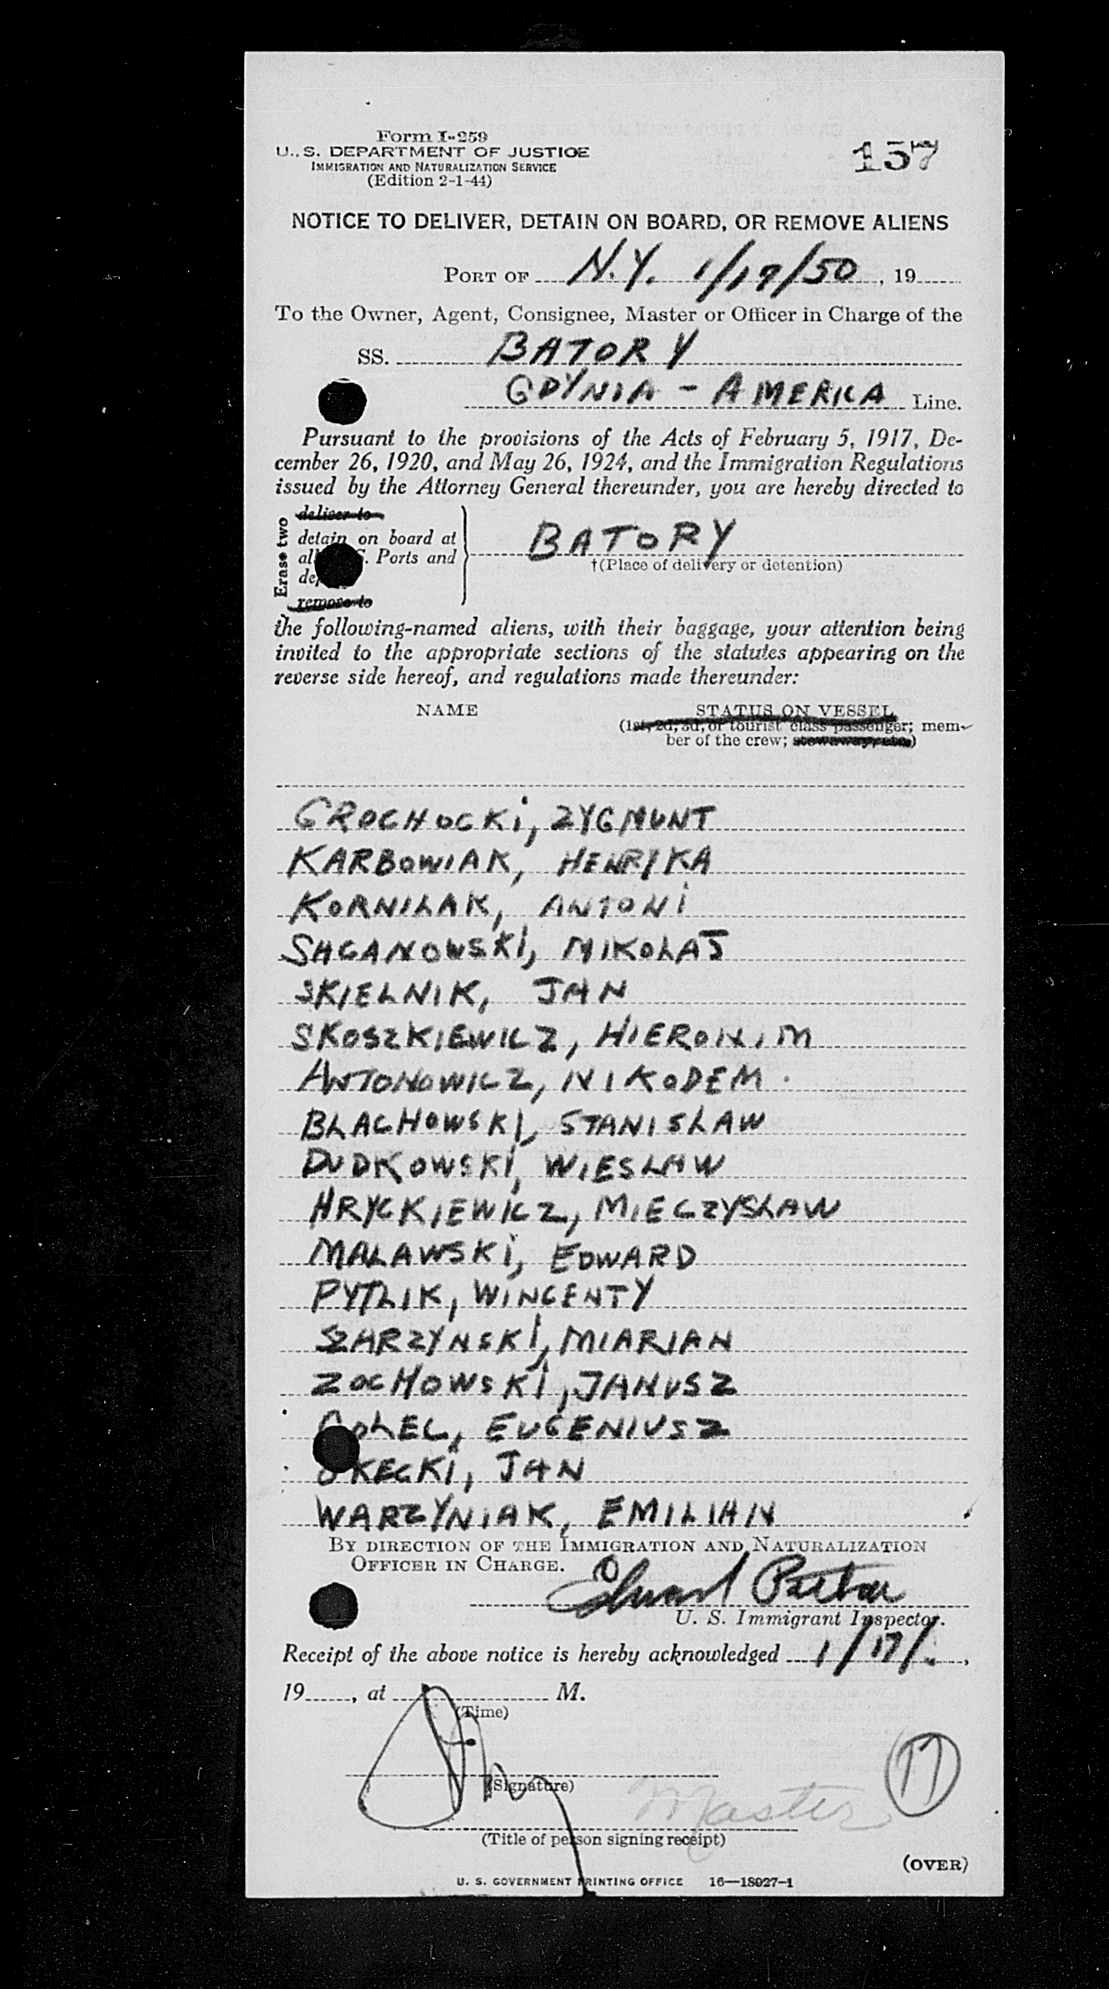 Form I-259
U. S. DEPARTMENT OF JUSTICE
IMMIGRATION AND NATURALIZATION SERVICE
(Edition 2-1-44)
157
NOTICE TO DELIVER, DETAIN ON BOARD, OR REMOVE ALIENS
PORT OF N.Y. 1/17/50, 19
To the Owner, Agent, Consignee, Master or Officer in Charge of the
SS. BATORY
GDYNIA - AMERICA Line.
Pursuant to the provisions of the Acts of February 5, 1917, De-
cember 26, 1920, and May 26, 1924, and the Immigration Regulations
issued by the Attorney General thereunder, you are hereby directed to
Erase two
deliver to
detain on board at
Ports and
remove to
BATORY
†(Place of delivery or detention)
the following-named aliens, with their baggage, your attention being
invited to the appropriate sections of the statutes appearing on the
reverse side hereof, and regulations made thereunder:
NAME
STATUS ON VESSEL
(1st, 2d, 3d, or tourist class passenger; mem-
ber of the crew; stowaway, etc.)
GROCHOCKI, ZYGMUNT
KARBOWIAK, HENRYKA
KORNILAK, ANTONI
SAGANOWSKI, MIKOLAJ
SKIELNIK, JAN
SKOSZKIEWICZ, HIERONIM
ANTONOWICZ, NIKODEM.
BLACHOWSKI, STANISLAW
DUDKOWSKI, WIESLAW
HRYCKIEWICZ, MIECZYSLAW
MALAWSKI, EDWARD
PYTLIK, WINCENTY
SZARZYNSKI, MIARIAN
ZOCHOWSKI, JANUSZ
GOLEC, EUGENIUSZ
OKECKI, JAN
WARZYNIAK, EMILIAN
BY DIRECTION OF THE IMMIGRATION AND NATURALIZATION
OFFICER IN CHARGE.
U. S. Immigrant Inspector.
Receipt of the above notice is hereby acknowledged 1/17/.,
19, at M.
(Time)
17
(Signature)
Master
(Title of person signing receipt)
(OVER)
U. S. GOVERNMENT PRINTING OFFICE 16—18027-1